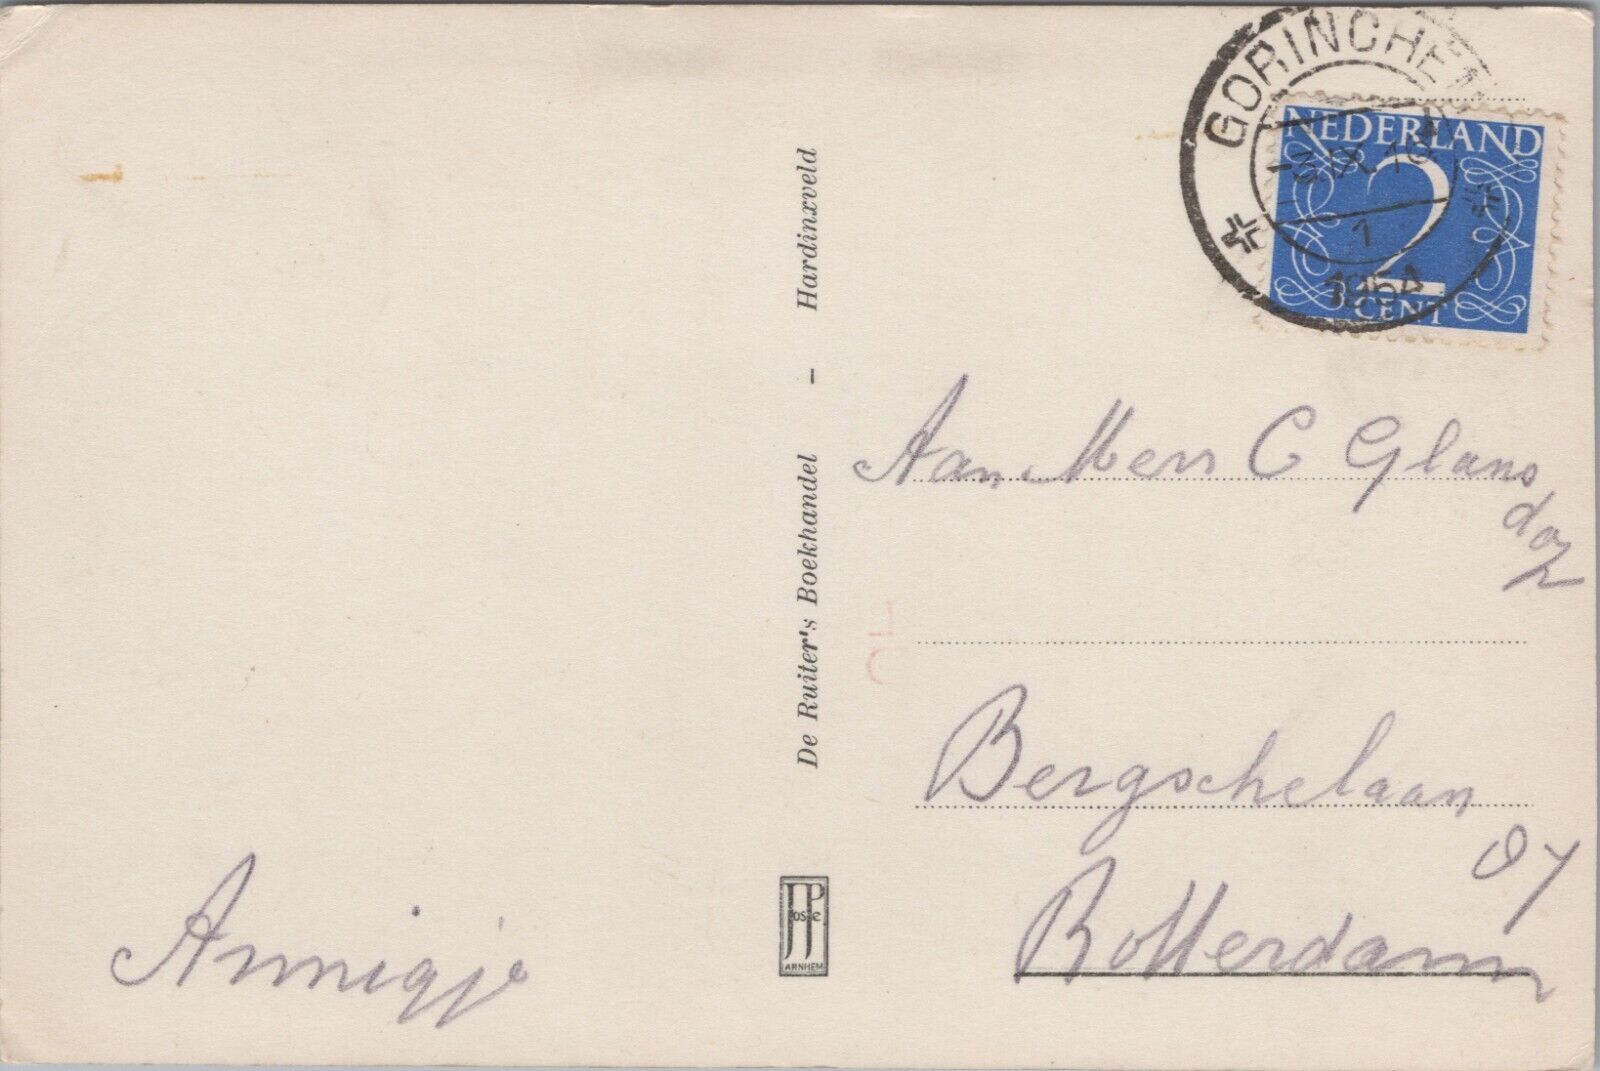 GORINCHEM
-3.IX.16
1
1954
NEDERLAND
2
CENT
De Ruiter's Boekhandel - Hardinxveld
Aan C Glans
Bergschelaan
Rotterdam
Annigje
JP
ARNHEM